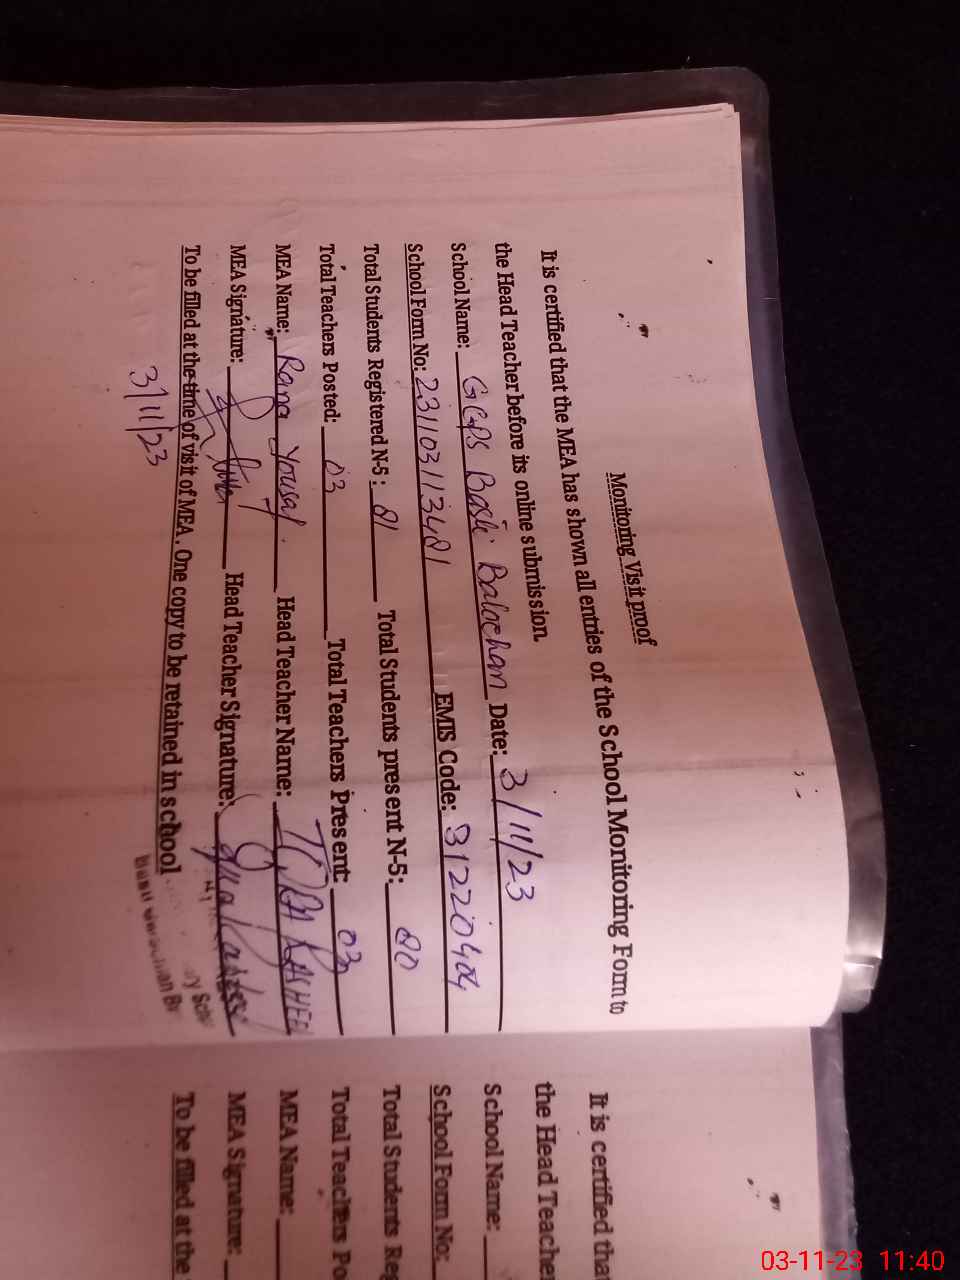 Monitoring Visit proof
It is certified that the MEA has shown all entries of the School Monitoring Form to
the Head Teacher before its online submission.
School Name: GGPS Basti Balochan Date: 3/11/23
School Form No: EMIS Code:
Total Students Registered N-5: Total Students present N-5:
Total Teachers Posted: 03 Total Teachers Present: 03
MEA Name: Rana Yousaf. Head Teacher Name:
MEA Signature: Head Teacher Signature:
To be filled at the time of visit of MEA. One copy to be retained in school
3/11/23
It is certified tha
the Head Teache
School Name:
School Form No:
Total Students Reg
Total Teachers Po
MEA Name:
MEA Signature:
To be filled at the
03-11-23 11:40